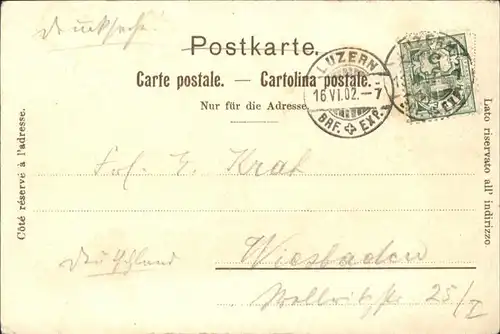 Drucksache
Postkarte.
Carte postale. — Cartolina postale.
LUZERN
16 VI.02.–7
BRF. EXP.
Nur für die Adresse.
Côté réservé à l'adresse.
Lato riservato all' indirizzo.
E.
Deutschland
Wiesbaden
25/I